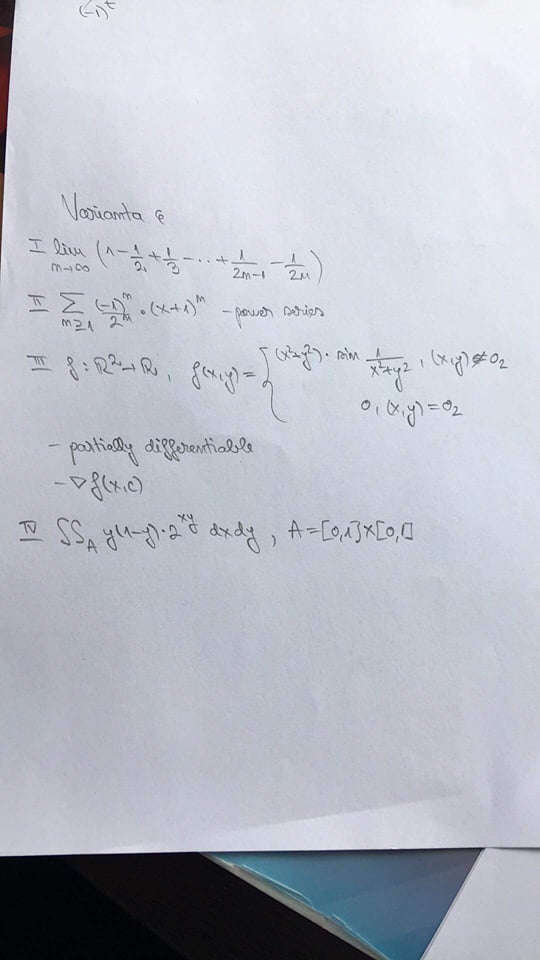 (-1)^t
Varianta e
I lim n→∞ (1 - 1/2 + 1/3 - ... + 1/2n-1 - 1/2n)
II ∑ n≥1 (-1)^n/2^n · (x+1)^n - power series
III f: ℝ²→ℝ, f(x,y) = { (x²+y²) · sin 1/x²+y², (x,y) ≠ 0₂
0, (x,y) = 0₂
- partially differentiable
- ∇f(x,c)
IV ∬_A y(1-y) · 2^xy dxdy, A = [0,1]×[0,1]